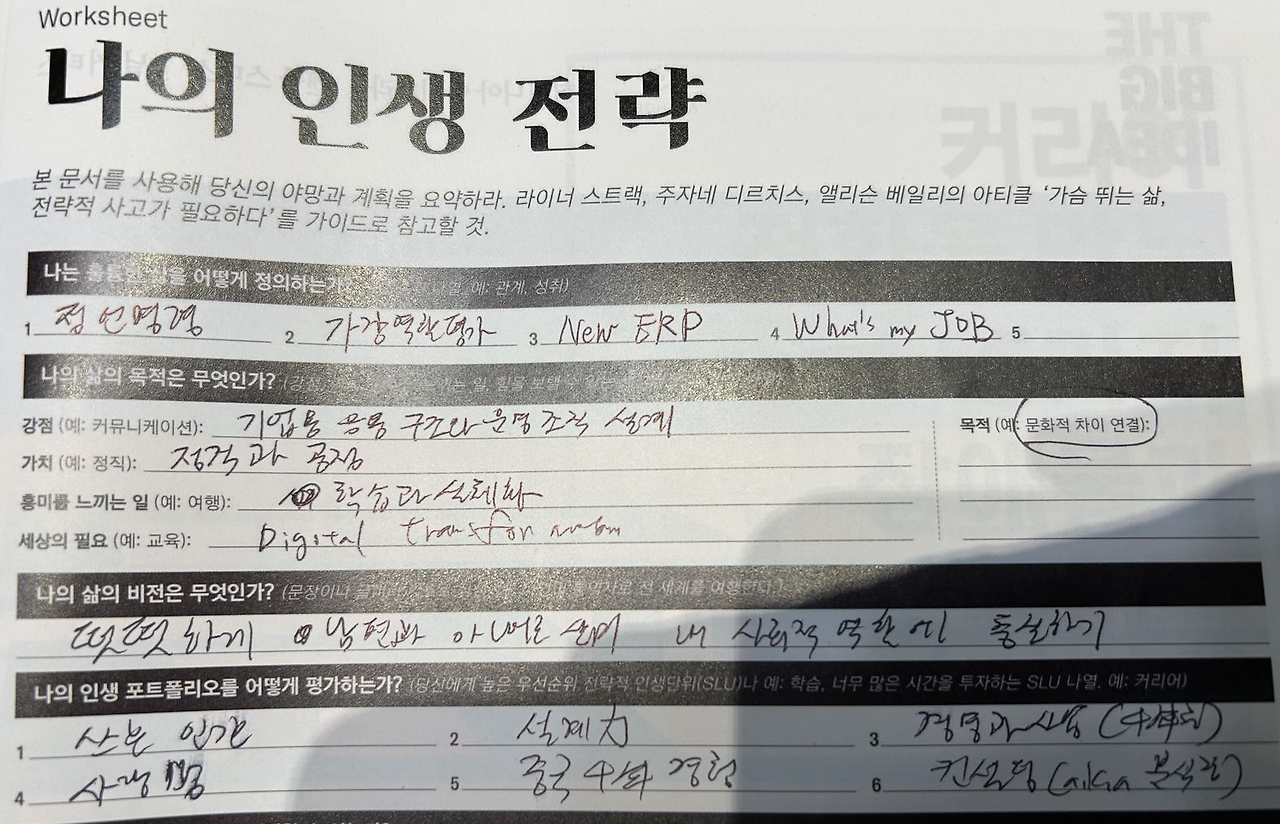 Worksheet
나의 인생 전략
본 문서를 사용해 당신의 야망과 계획을 요약하라. 라이너 스트랙, 주자네 디르치스, 앨리슨 베일리의 아티클 ‘가슴 뛰는 삶,
전략적 사고가 필요하다’를 가이드로 참고할 것.
나는 훌륭한 삶을 어떻게 정의하는가? 예: 관계, 성취)
1 정언명령 2 가감역할평가 3 New ERP 4 What's my JOB 5
나의 삶의 목적은 무엇인가? (강점,
강점 (예: 커뮤니케이션): 기업용 응용 구조와 운영 조직 설계
목적 (예: 문화적 차이 연결):
가치 (예: 정직): 정직과 공정
흥미를 느끼는 일 (예: 여행): 학습과 실체화
세상의 필요 (예: 교육): Digital transformation
나의 삶의 비전은 무엇인가? (문장이나 전 세계를 여행한다.)
떳떳하게 남편과 아버로 살며 내 사회적 역할에 충실하기
나의 인생 포트폴리오를 어떻게 평가하는가? (당신에게 높은 우선순위 전략적 인생단위(SLU)나 예: 학습, 너무 많은 시간을 투자하는 SLU 나열. 예: 커리어)
1 산본 인간 2 설계力 3
4 사랑 5 중국 경험 6 컨설팅 (aka 분석관)